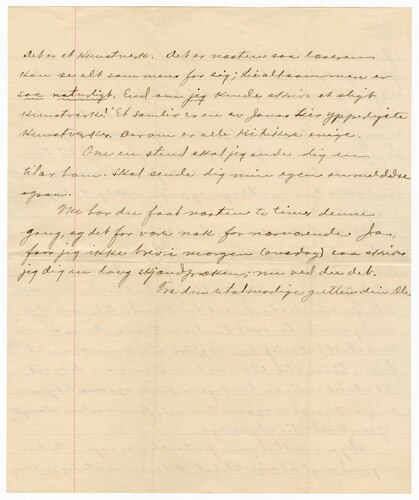 Det er et kunstverk. Det er næsten saa læseren
kan se alt sammens for sig; lie alt sammen er
saa naturligt. End om jeg kunde skrive et sligt
kunstverk! Et samliv er en av Jonas Lies ypperligste
kunstverker. Derom er alle kritiker enige.
Om en stund skal jeg sende dig en
eksam. Skal sende dig min egen anmeldelse
ogsaa.
Nu har du faat næsten to timer denne
gang, og det for være nok for nærværende. Ja,
faar jeg ikke brev i morgen (onsdag) saa skriver
jeg dig en lang skjændpræken; nu ved du det.
Fra den utaalmodige gutten din Ole.